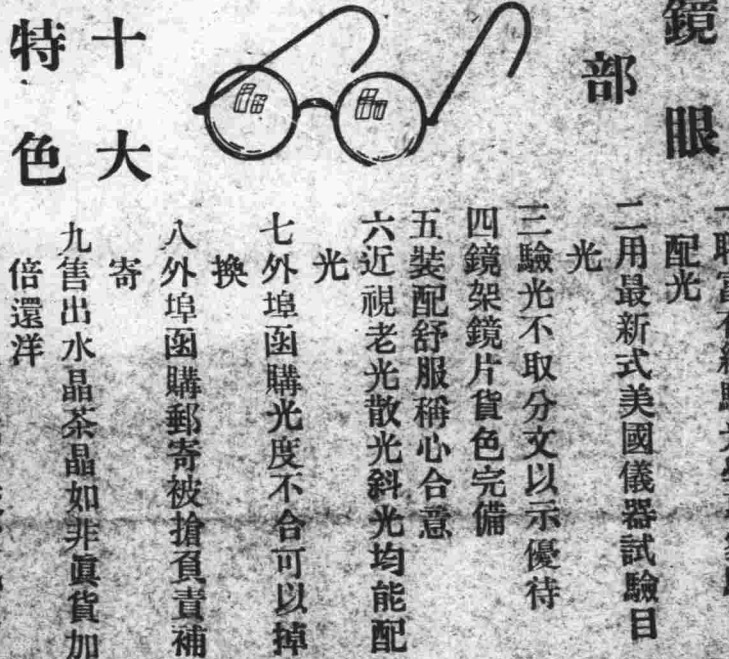 眼鏡
部
十大
特色
配光
二用最新式美國儀器試驗目
光
三驗光不取分文以示優待
四鏡架鏡片貨色完備
五裝配舒服稱心合意
六近視老光散光斜光均能配
光
七外埠函購光度不合可以掉
換
八外埠函購郵寄被搶負責補
寄
九售出水晶茶晶如非眞貨加
倍還洋